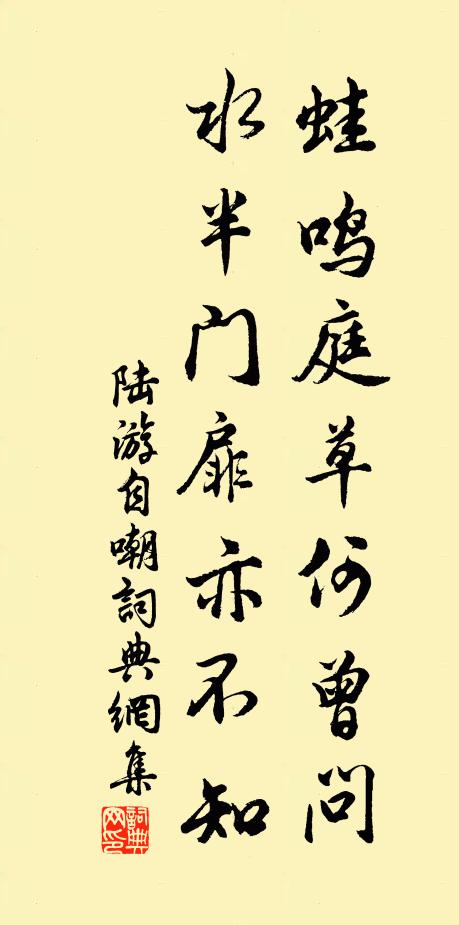 蛙鸣庭草何曾问
水半门扉亦不知
陆游自嘲词典網集
詞典
网印